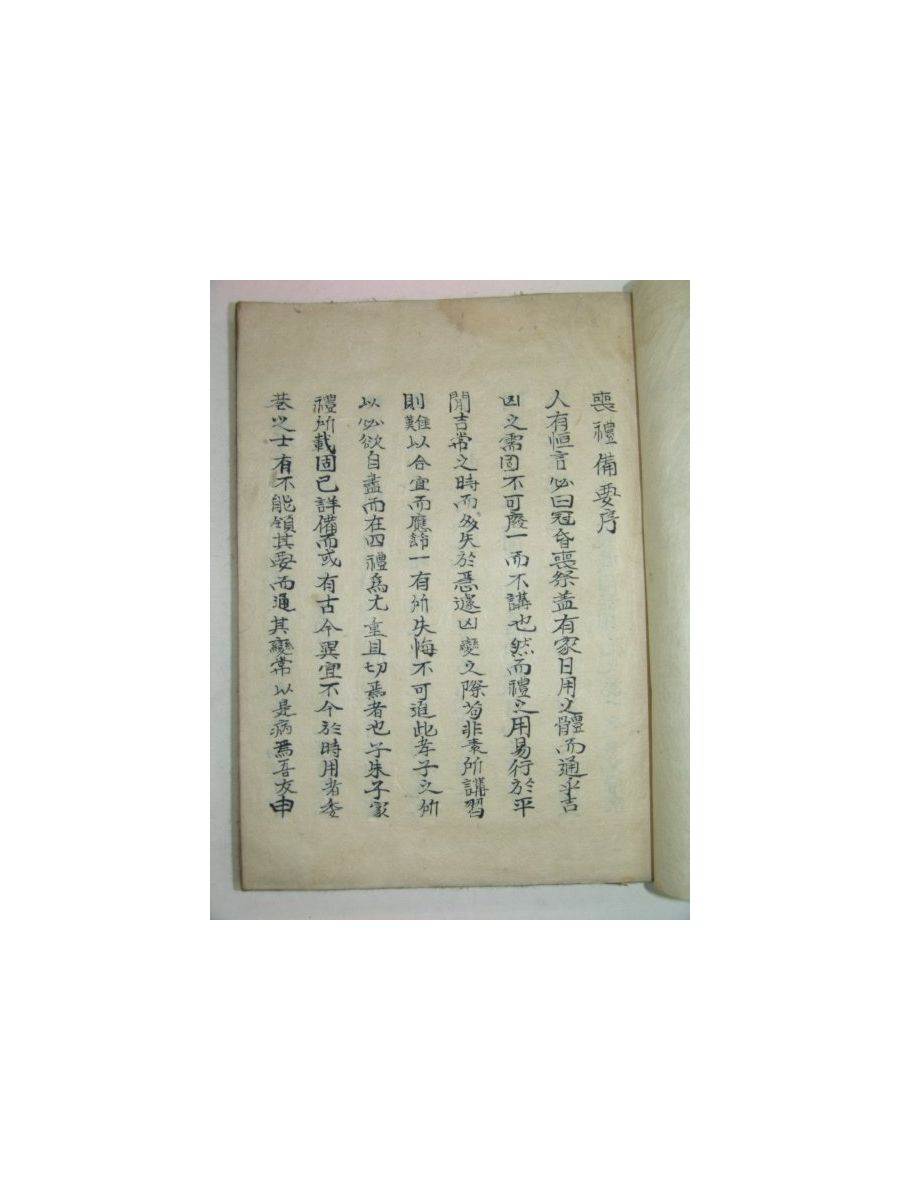 喪禮備要序
人有恒言必曰冠昏喪祭盖有家日用之體而通乎吉
凶之需固不可廢一而不講也然而禮之用易行於平
閒吉常之時而多失於悤遽凶變之際苟非素所講習
則難以合宜而應節一有所失悔不可追此孝子之所
以必欲自盡而在四禮爲尤重且切焉者也子朱子家
禮所載固已詳備而或有古今異宜不今於時用者委
巷之士有不能領其要而通其變常以是病焉吾友申